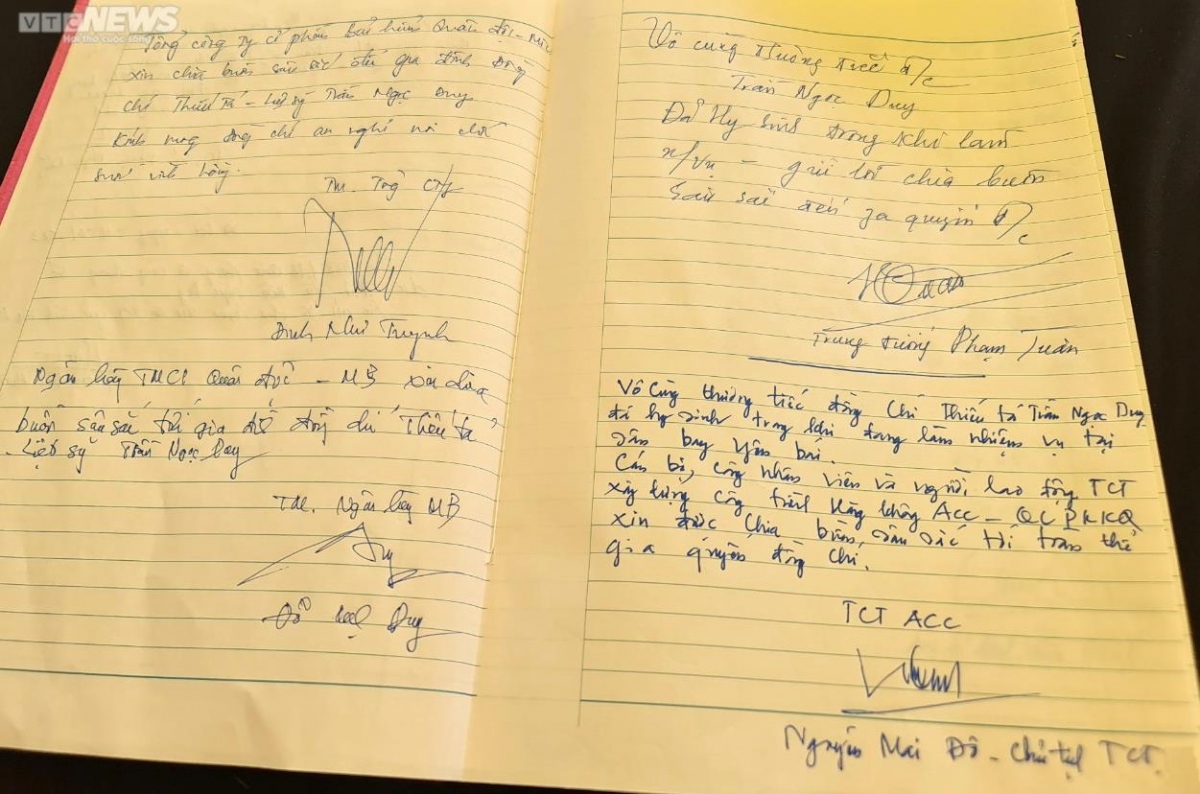 VTC NEWS
Tổng công ty cổ phần Bảo hiểm Quân đội - MIC
xin chia buồn sâu sắc tới gia đình đồng
chí Thiếu tá - Liệt sỹ Trần Ngọc Duy
Kính mong đồng chí an nghỉ nơi chốn
vĩnh hằng.
TM. Tổng Cty
Đinh Như Tuynh
Ngân hàng TMCP Quân đội - MB xin chia
buồn sâu sắc tới gia đình đồng chí Thiếu tá
Liệt sỹ Trần Ngọc Duy
TM. Ngân hàng MB
Duy
Vô cùng thương tiếc đ/c
Trần Ngọc Duy
Đã Hy sinh trong khi làm
n/vụ - gửi lời chia buồn
Sâu sắc đến gia quyến đ/c
Trung tướng Phạm Tuân
Vô cùng thương tiếc đồng chí Thiếu tá Trần Ngọc Duy
đã hy sinh trong khi đang làm nhiệm vụ tại
sân bay Yên bái.
Cán bộ, công nhân viên và người lao động TCT
xây dựng công trình hàng không ACC - QC PKKQ
xin được chia buồn sâu sắc tới toàn thể
gia quyến đồng chí.
TCT ACC
Nguyễn Mai Đô - Chủ tịch TCT.